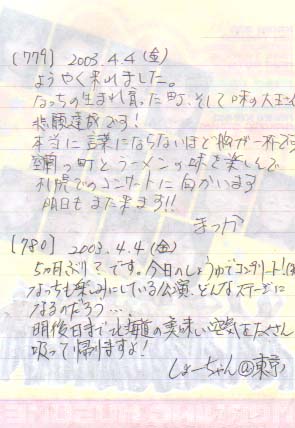 [779] 2003.4.4(金)
ようやく来れました。
なっちの生まれ育った町、そして味の大王
悲願達成です!
本当に言葉にならないほど胸が一杯で
鋼の町とラーメンの味を楽しんで
札幌でのコンサートに向かいます
明日もまた来ます!!
まっか
[780] 2003.4.4(金)
5ヵ月ぶりです。今日のしょうゆでコンプリート!
なっちも楽しみにしている公演、どんなステージに
なるのだろう…
明後日まで北海道の美味しい空気をたくさん
吸って帰りますよ!
しょーちゃん@東京